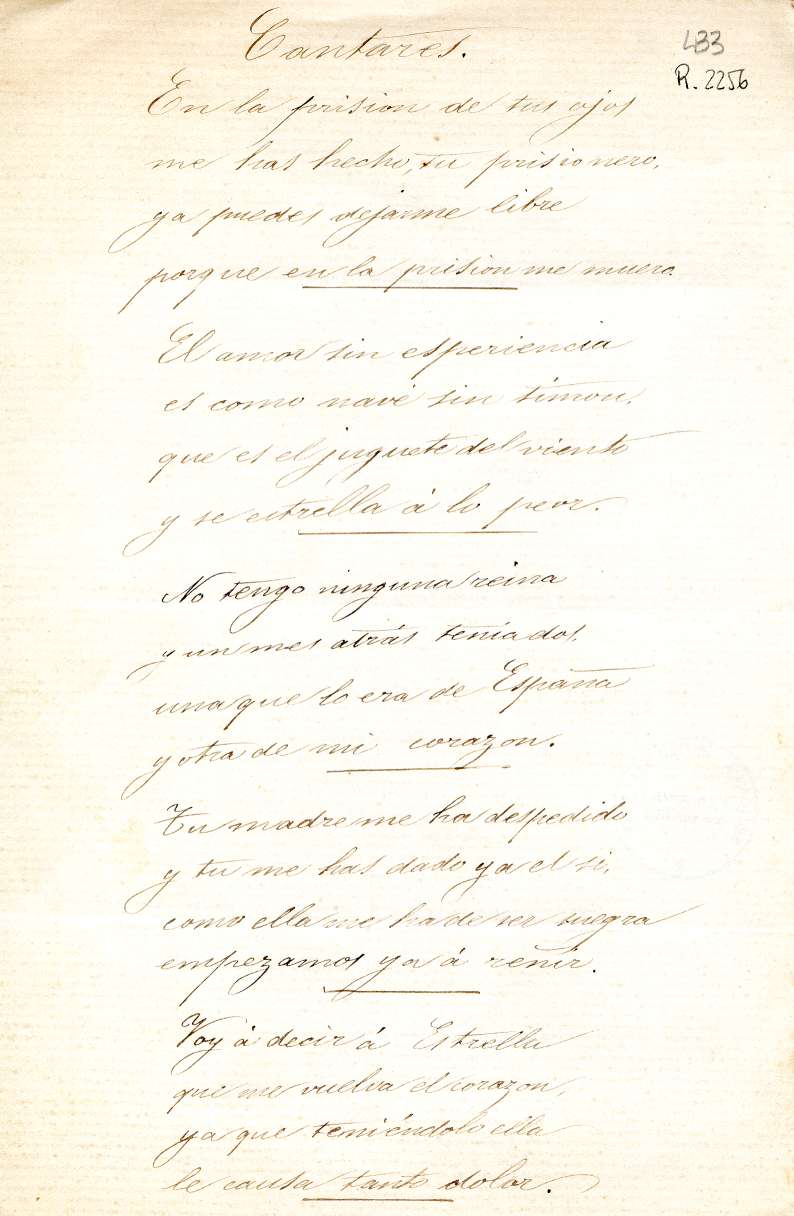 Cantares.
483
R. 2256
En la prision de tus ojos
me has hecho, tu prisionero,
ya puedes dejarme libre
porque en la prision me muero.
El amor sin esperiencia
es como nave sin timon,
que es el juguete del viento
y se estrella á lo peor.
No tengo ninguna reina
y un mes atrás tenia dos,
una que lo era de España
y otra de mi corazon.
Tu madre me ha despedido
y tu me has dado ya el si,
como ella me ha de ser suegra
empezamos ya á reñir.
Voy á decir á Estrella
que me vuelva el corazon,
ya que teniéndolo ella
le causa tanto dolor.